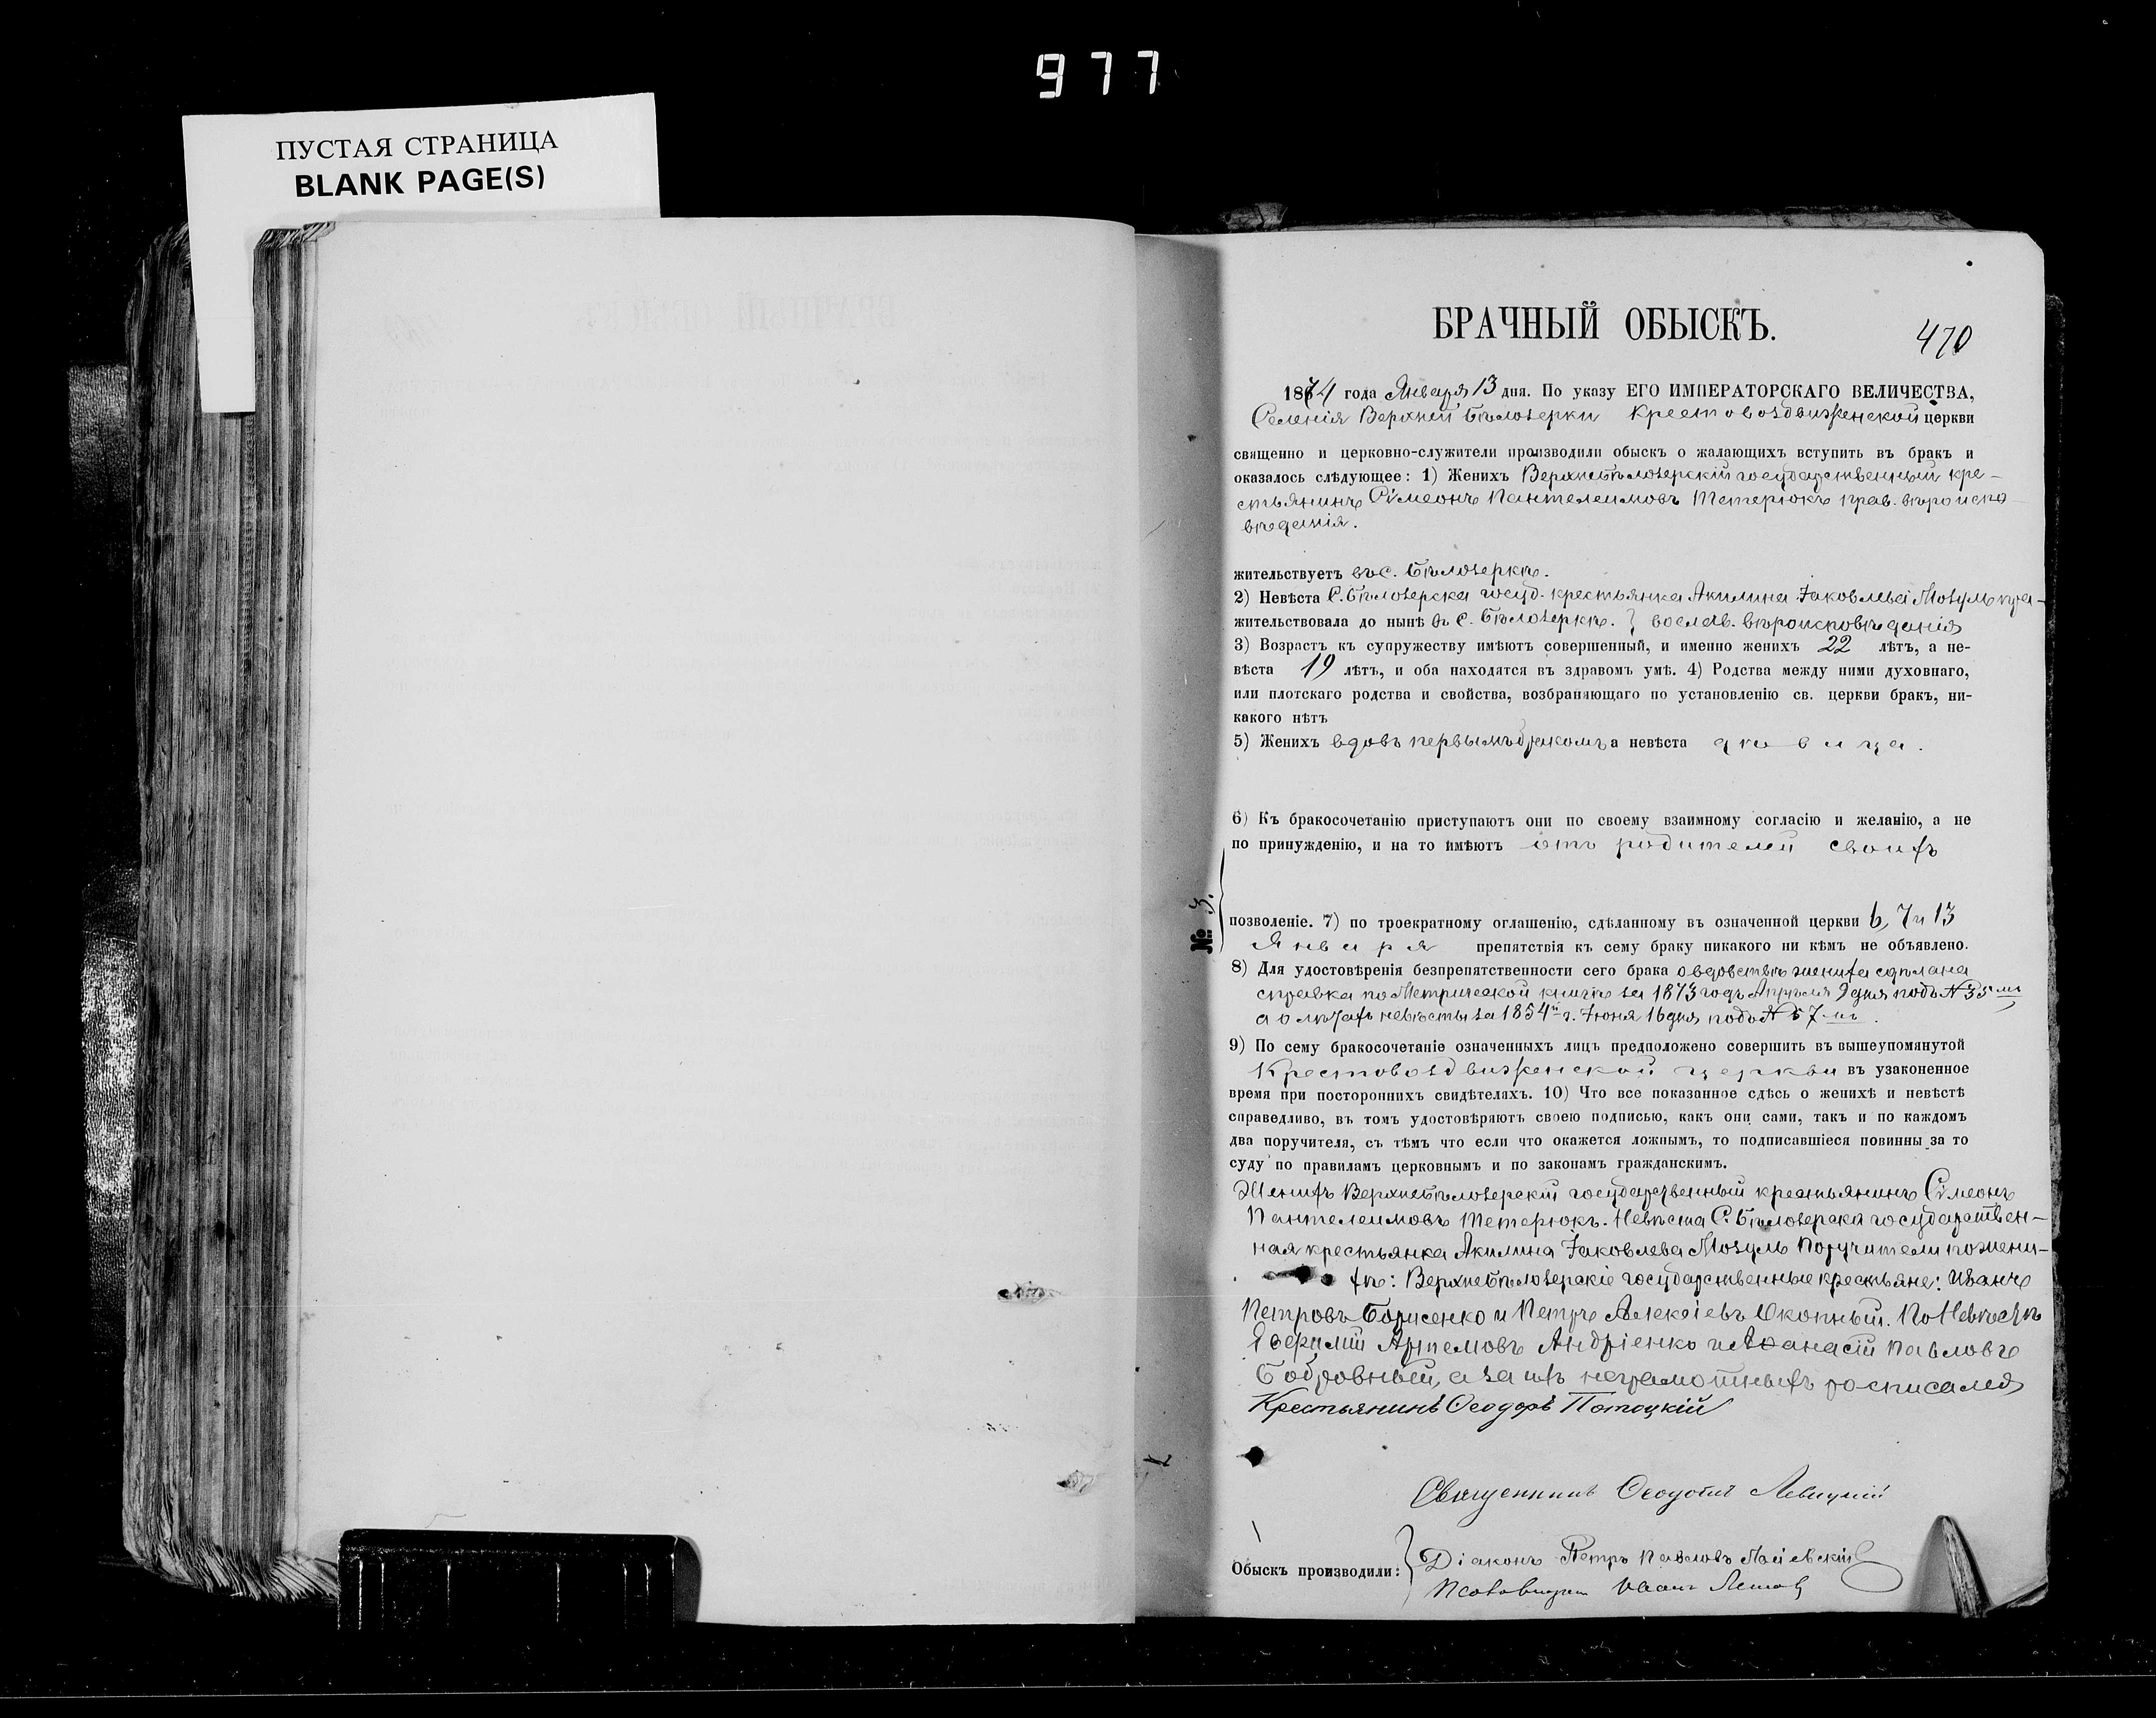 977
ПУСТАЯ СТРАНИЦА
BLANK PAGE(S)
БРАЧНЫЙ ОБЫСКЪ.
470
1874 года Января 13 дня. По указу ЕГО ИМПЕРАТОРСКАГО ВЕЛИЧЕСТВА,
Селенія Верхней Бѣлозерки Крестовоздвиженской церкви
священно и церковно-служители производили обыск о жалающихъ вступить въ бракъ и
оказалось слѣдующее: 1) Женихъ Верхнебѣлозерскій государственный кре-
стьянинъ Сѵмеонъ Пантелеимовъ Тетерюкъ прав. вѣроиспо
вѣданія.
жительствуетъ въ с. Бѣлозеркѣ.
2) Невѣста С. Бѣлозерска госуд. крестьянка Акилина Іаковлева Мозуль пра-
жительствовала до нынѣ въ С. Бѣлозеркѣ. } вослав. вѣроисповѣданія
3) Возрастъ къ супружеству имѣютъ совершенный, и именно женихъ 22 лѣтъ, а не-
вѣста 19 лѣтъ, и оба находятся въ здравомъ умѣ. 4) Родства между ними духовнаго,
или плотскаго родства и свойства, возбраняющаго по установленію св. церкви бракъ, ни-
какого нѣтъ
5) Женихъ вдовъ первымъ бракомъ а невѣста дѣвица.
6) Къ бракосочетанію приступаютъ они по своему взаимному согласію и желанію, а не
по принужденію, и на то имѣютъ отъ родителей своихъ
№ 3.
позволеніе. 7) по троекратному оглашенію, сдѣланному въ означенной церкви 6, 7 и 13
Января препятствія къ сему браку никакого ни кѣмъ не объявлено.
8) Для удостовѣренія безпрепятственности сего брака о вдовствѣ жениха сдѣлана
справка по Метрической книгѣ за 1873 годъ Апрѣля 9 дня подъ № 35 мъ
а о лѣтахъ невѣсты за 1854й г. Іюня 16 дня подъ № 57-мъ.
9) По сему бракосочетаніе означенныхъ лицъ предположено совершить въ вышеупомянутой
Крестовоздвиженской церкви въ узаконенное
время при посторонних свидѣтеляхъ. 10) Что все показанное сдѣсь о женихѣ и невѣстѣ
справедливо, въ томъ удостовѣряютъ своею подписью, какъ они сами, такъ и по каждомъ
два поручителя, съ тѣмъ что если что окажется ложнымъ, то подписавшіеся повинны за то
суду по правиламъ церковнымъ и по законамъ гражданскимъ.
Женихъ Верхнебѣлозерскій государственный крестьянинъ Сѵмеонъ
Пантелеимовъ Тетерюкъ. Невѣста С. Бѣлозерска государствен-
ная крестьянка Акилина Іаковлева Мозуль Поручители по жени-
хѣ: Верхнебѣлозерскіе государственные крестьяне: Иванъ
Петровъ Борисенко и Петръ Алексіевъ Окопный. По Невѣстѣ
Артемовъ Андріенко и Аѳанасій Павловъ
Бобровный, а за ихъ неграмотныхъ росписался
Крестьянинъ Ѳеодоръ Потоцкій
Священникъ Ѳеодотій Левицкій
Обыскъ производили:
Діаконъ Петръ Павловъ
Иванъ